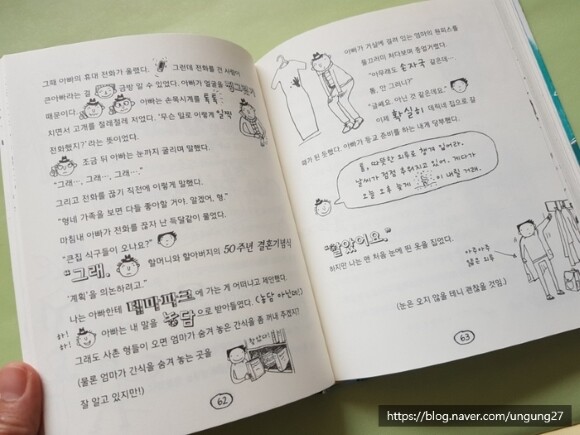 그때 아빠의 휴대 전화가 울렸다. 그런데 전화를 한 사람이
큰아빠라는 걸 금방 알 수 있었다. 아빠가 얼굴을 찡그렸기
때문이다. 아빠는 손목시계를 톡톡
치면서 고개를 절레절레 저었다. '무슨 일로 이렇게 일찍
전화했지?'라는 뜻이었다.
조금 뒤 아빠는 눈까지 굴리며 말했다.
"그래…, 그래…, 그래…."
그리고 전화를 끊기 직전에 이렇게 말했다.
"형네 가족을 보면 다들 좋아할 거야. 알겠어, 형."
마침내 아빠가 전화를 끊자 난 득달같이 물었다.
"큰집 식구들이 오나요?"
"그래. 할머니와 할아버지의 50주년 결혼기념식
'계획'을 의논하려고."
나는 아빠한테 테마파크에 가는 게 어떠냐고 제안했다.
하! 하! 아빠는 내 말을 농담으로 받아들였다. (농담 아닌데!)
그래도 사촌 형들이 오면 엄마가 숨겨 놓은 간식을 좀 꺼내 주겠지?
(물론 엄마가 간식을 숨겨 놓는 곳을
잘 알고 있지만!)
찾았다!
62
아빠가 거실에 걸려 있는 엄마의 원피스를
물끄러미 쳐다보며 중얼거렸다.
"아무래도 손자국 같은데…
톰, 안 그러니?"
"글쎄요, 아닌 것 같은데요."
이제 확실히 데릭네 집으로 갈
때가 된 듯했다. 아빠가 등교 준비를 하는 내게 당부했다.
톰, 따뜻한 외투로 챙겨 입어라.
날씨가 점점 추워지고 있어. 게다가
오늘 오후 늦게 이 내릴 거래.
"알았어요."
하지만 나는 맨 처음 눈에 띈 옷을 집었다.
아주아주
얇은 외투
(눈은 오지 않을 테니 괜찮을 것임.)
63
https://blog.naver.com/ungung27